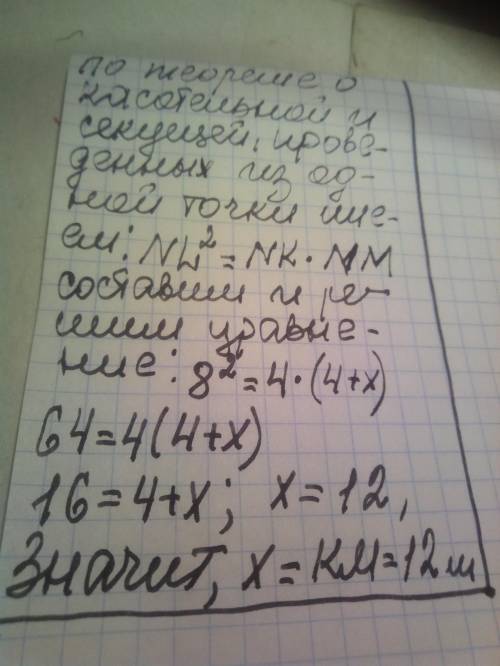 по теореме о
касательной и
секущей, прове-
денных из од-
ной точки име-
ем: NL² = NK · NM
составим и ре-
шим уравне-
ние: 8² = 4 · (4+x)
64 = 4(4+x)
16 = 4+x; x = 12,
Значит, x = KM = 12 м